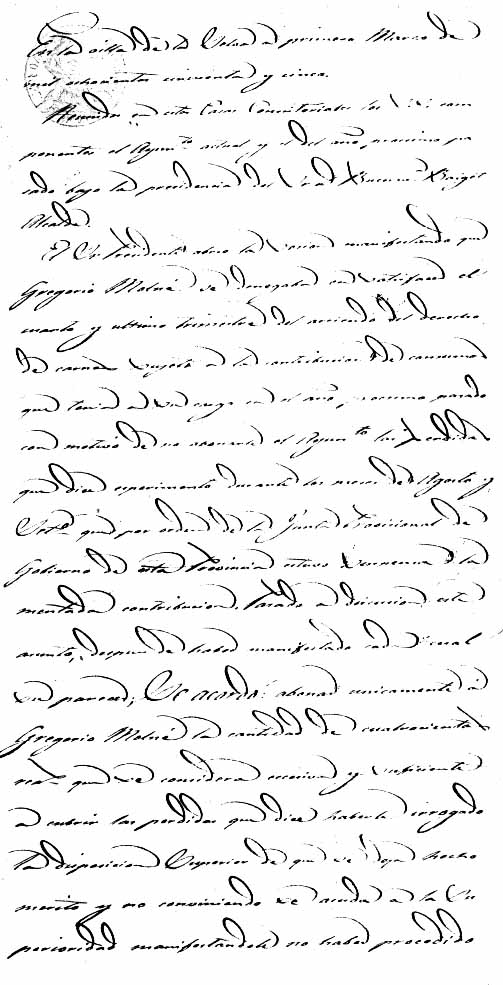 En la villa de la Selva a primero Marzo de
mil ochocientos cincuenta y cinco.
Reunidos en esta Casas Consistoriales los com
ponentes el Ayunto actual, y el del año, proximo pa
sado bajo la presidencia del
Alcalde.
El Sr Presidente abrio la sesion manifestando que
Gregorio Matué se denegaba en satisfacer el
cuarto y ultimo trimestre del arriendo del derecho
de carnes sujeto a la contribucion de consumos
que tenia a su cargo en el año, proximo pasado
con motivo de no abonarle el Ayunto las perdidas
que dice esperimentó durante los meses de Agosto y
Setre que por orden de la Junta Provicional de
Gobierno de esta Provincia estuvo suspensa la
mentada contribucion. Pasado a discucion este
asunto, despues de haber manifestado cada cual
su parecer, Se acordó: abonar unicamente a
Gregorio Matué la cantidad de cuatrocientos
reals que se considera y suficiente
a cubrir las perdidas que dice haberle irrogado
la disposicion Superior de que se deja hecho
merito y no conviniendo se acuda a la Su
perioridad manifestandole no haber procedido